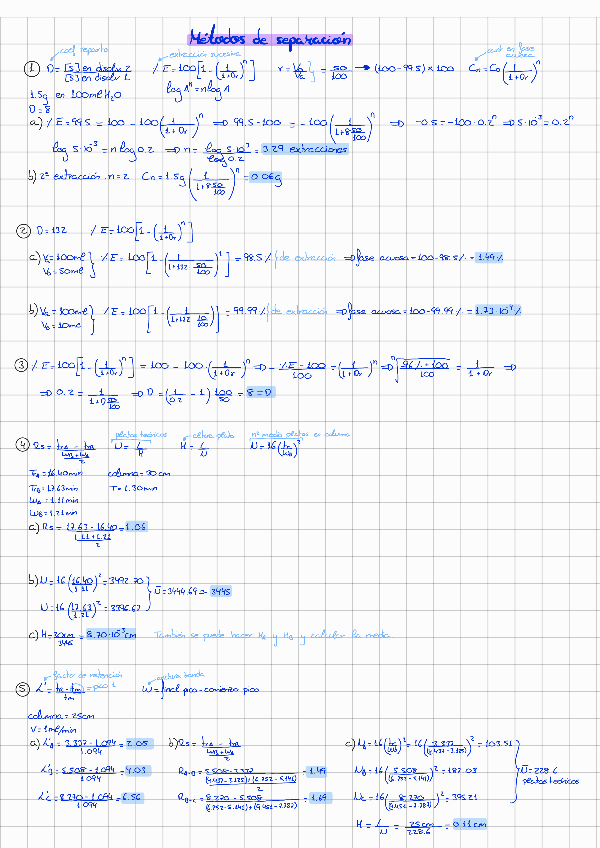 Métodos de separación
coef reparto
extracción sucesiva
cant en fase acuosa
① D = [S] en disolv 2 / [S] en disolv 1   %E = 100[1 - (1/(1+Dr))^n]   r = V₀/Va = 50/100 → (100-99.5)×100   Cn = C₀(1/(1+Dr))^n
1.5g en 100ml H₂O
log Aⁿ = n log A
D = 8
a) %E = 99.5 = 100 - 100(1/(1+Dr))^n ⇒ 99.5 - 100 = -100(1/(1+8 50/100))^n ⇒ -0.5 = -100·0.2^n ⇒ 5·10⁻³ = 0.2^n
log 5·10⁻³ = n log 0.2 ⇒ n = log 5·10⁻³ / log 0.2 = 3.29 extracciones
b) 2ª extracción. n = 2   Cn = 1.5g(1/(1+8 50/100))^n = 0.06g
② D = 132   %E = 100[1 - (1/(1+Dr))^n]
a) Va = 100ml
V₀ = 50ml
%E = 100[1 - (1/(1+132 50/100))^1] = 98.5% % de extracción ⇒ fase acuosa = 100 - 98.5% = 1.49%
b) Va = 100ml
V₀ = 10ml
%E = 100[1 - (1/(1+132 10/100))] = 99.99% % de extracción ⇒ fase acuosa = 100 - 99.99% =
③ %E = 100[1 - (1/(1+Dr))^n] = 100 - 100(1/(1+Dr))^n ⇒ - %E - 100 / 100 = (1/(1+Dr))^n ⇒ = 1/(1+Dr) ⇒
⇒ 0.2 = 1/(1+D 50/100) ⇒ D = (1/0.2 - 1) 100/50 = 8 = D
platos teóricos
altura plato
nº medio platos en columna
④ Rs = (trB - trA)/((WA+WB)/2)   N = L/H   H = L/N   N = 16(tr/Wb)²
TrA = 16.40min   columna = 30cm
TrB = 17.63min   T = 1.30min
WA = 1.11min
WB = 1.21min
a) Rs = (17.63 - 16.40)/((1.11+1.21)/2) = 1.06
b) N = 16(16.40/1.11)² = 3492.70
N = 16(17.63/1.21)² = 3396.67
N̄ = 3444.69 ≈ 3445
c) H = 30cm/3445 = 8.70·10⁻³cm   También se puede hacer HA y HB y calcular la media
factor de retención
anchura banda
⑤ K' = (tr - tm)/tm = pico 1   W = final pico - comienzo pico
columna = 25cm
V = 1ml/min
a) K'A = (3.337 - 1.094)/1.094 = 2.05
b) Rs = (trB - trA)/((WA+WB)/2)
c) NA = 16(tr/Wb)² = 16 = 103.51
K'B = (5.508 - 1.094)/1.094 = 4.03
RA-B = = 1.49
NB = 16 = 187.03
K'C = (8.270 - 1.094)/1.094 = 6.56
RB-C = = 1.69
NC = 16 = 395.21
N̄ = 228.6
platos teóricos
H = L/N = 25cm/228.6 = 0.11cm